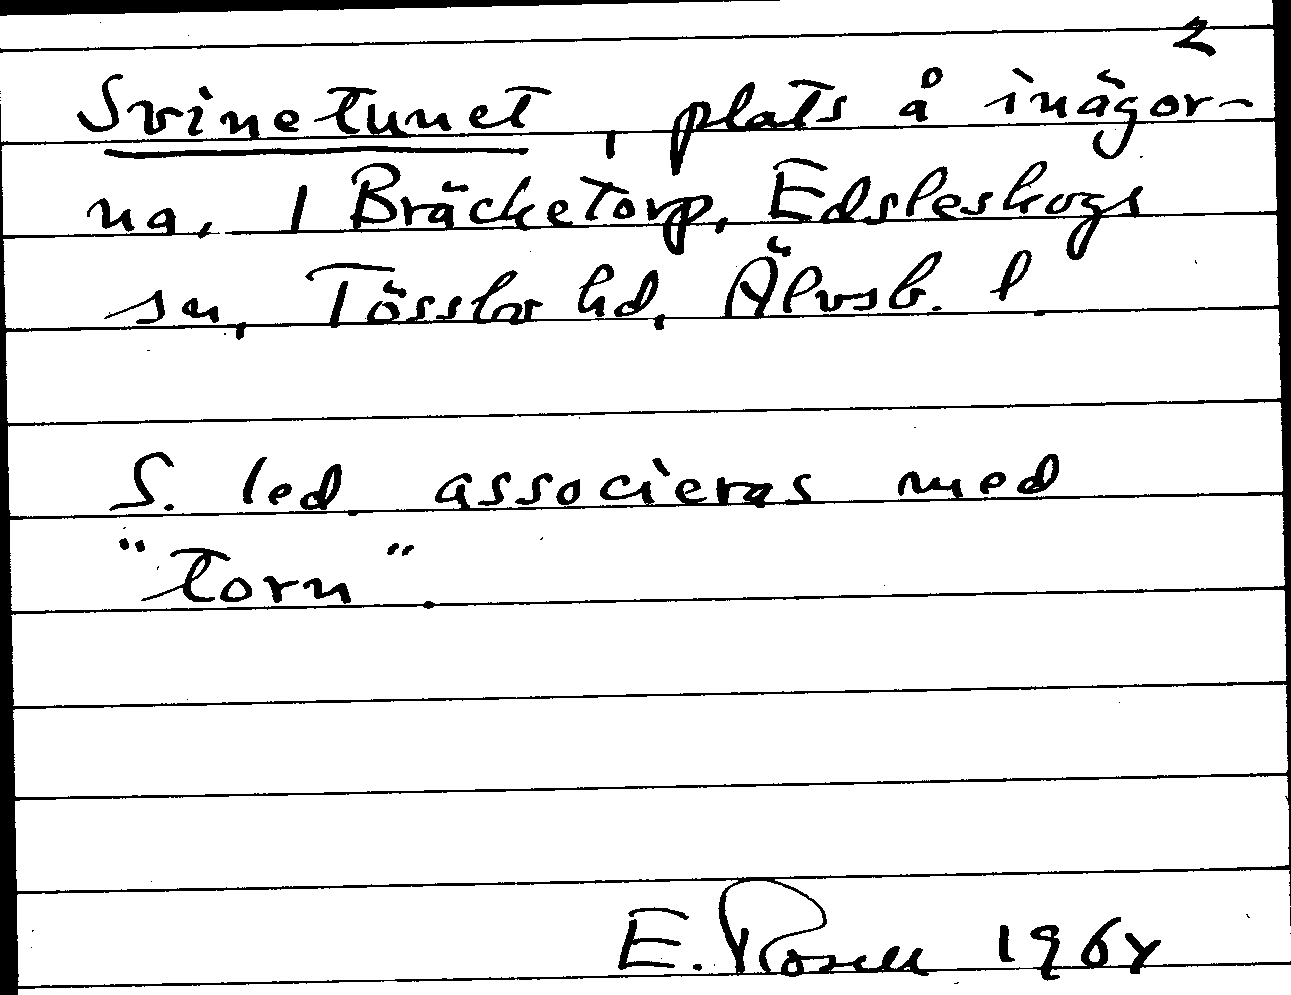 2
Svinetunet, plats å inägor-
na, 1 Bräcketorp, Edsleskogs
sn, Tössbo hd, Älvsb. l.
S. led. associeras med
"torn".
E. Rosell